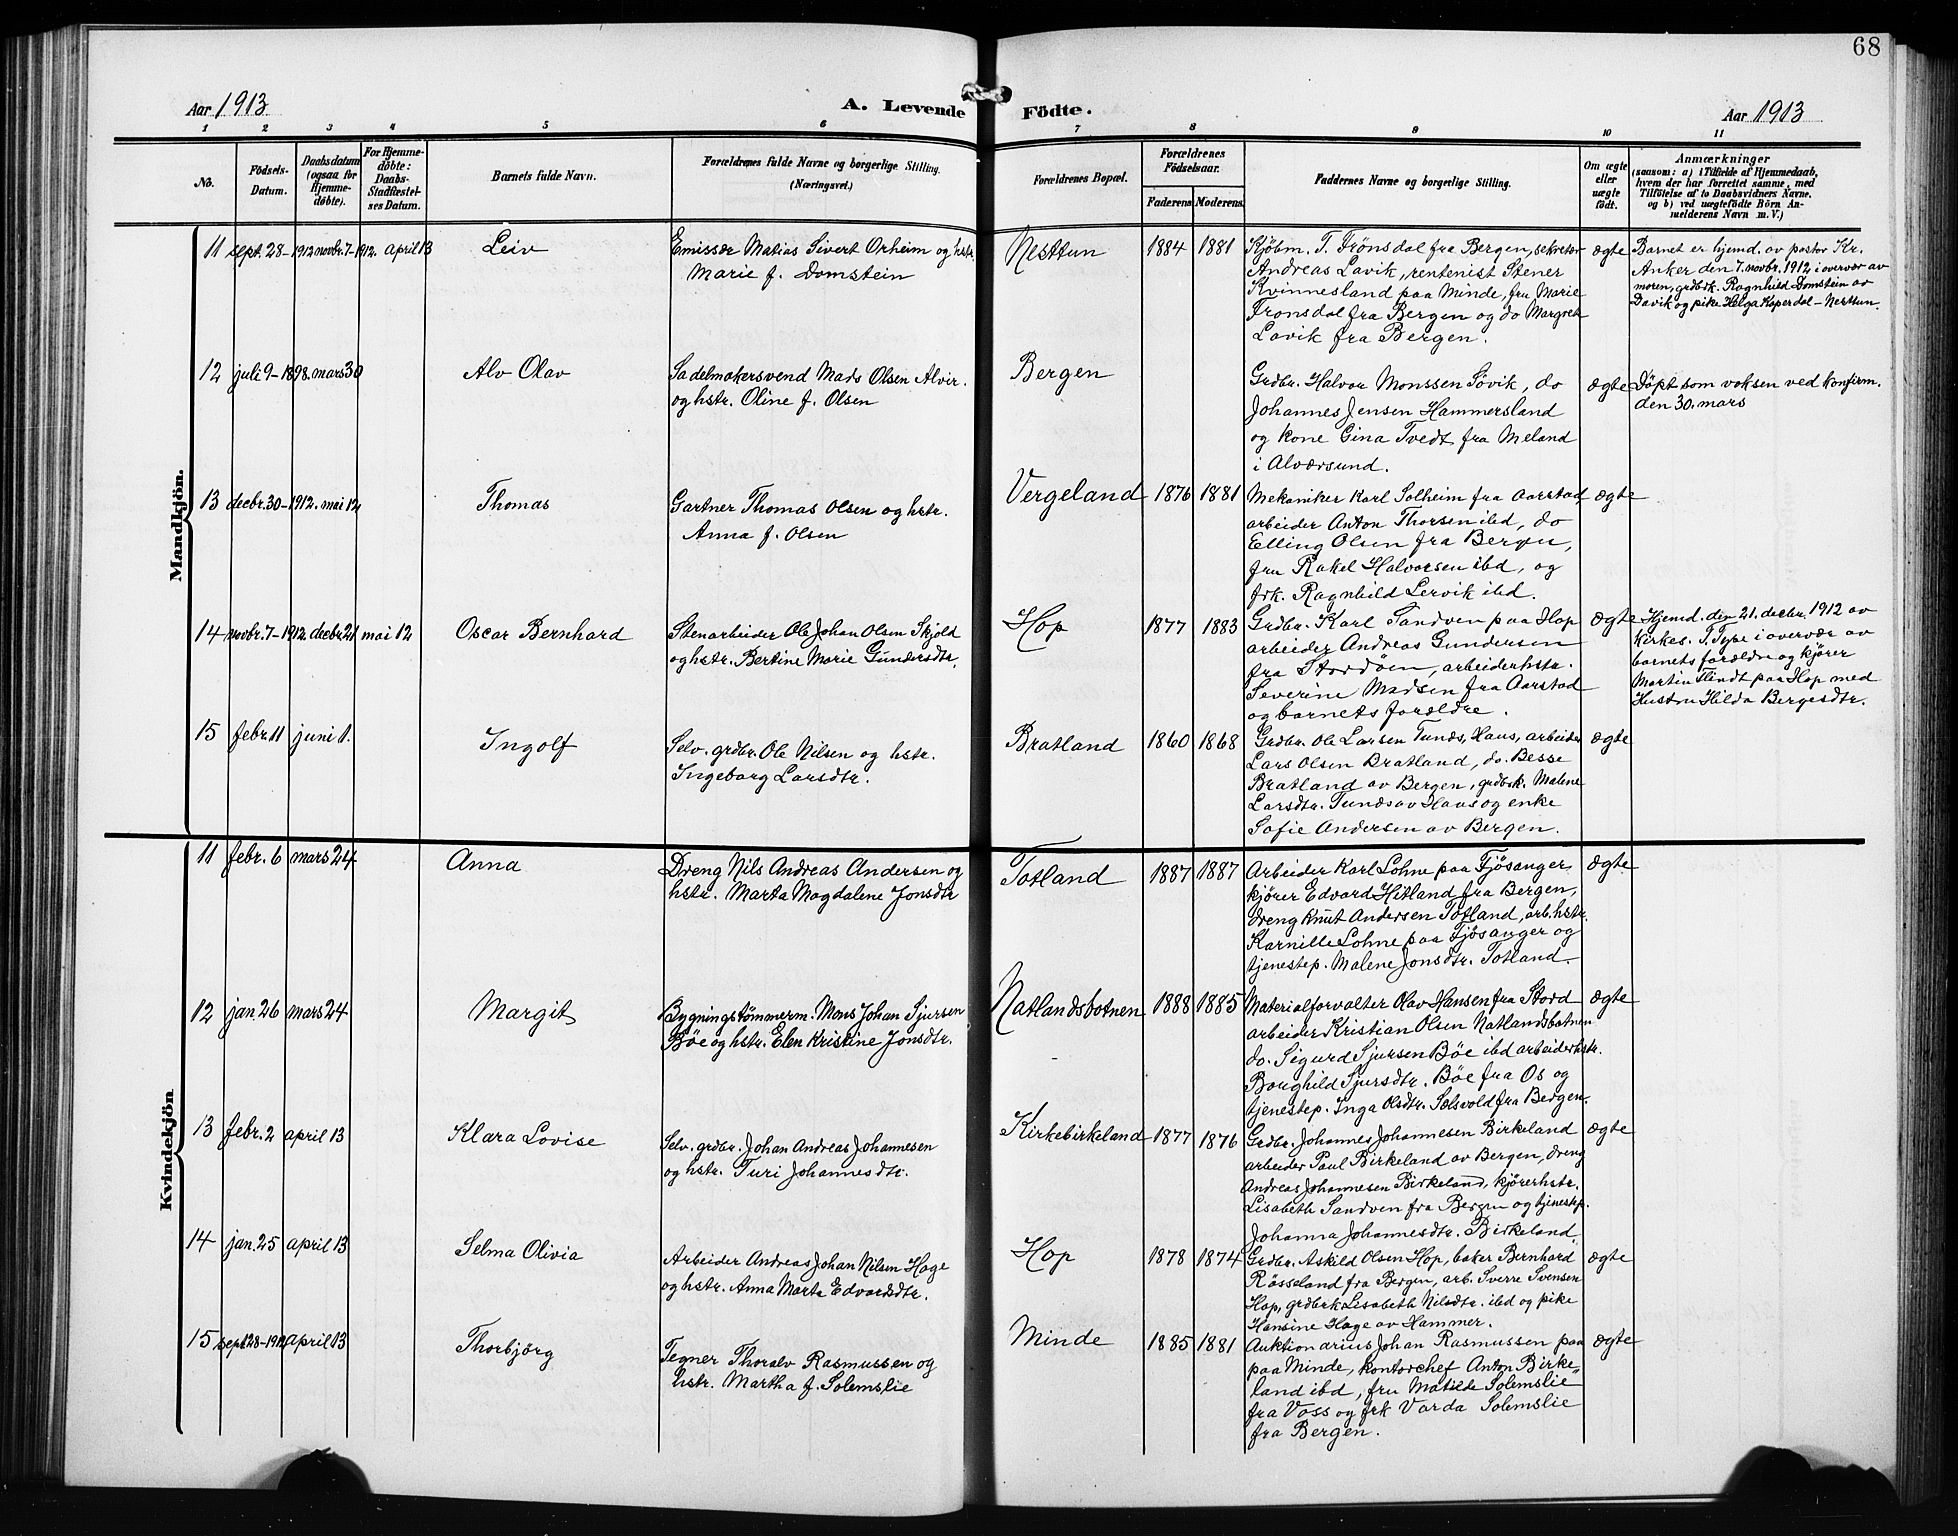 68
Aar 1913
A. Levende Födte.
Aar 1913
1 2 3 4 5 6 7 8 9 10 11
No.
Födsels-Datum.
Daabsdatum (ogsaa for Hjemme-döbte).
For Hjemme-döbte: Daabs-Stadfæstel-ses Datum.
Barnets fulde Navn.
Forældrenes fulde Navne og borgerlige Stilling. (Næringsvei.)
Forældrenes Bopæl.
Forældrenes Födselsaar.
Faderens
Moderens
Faddernes Navne og borgerlige Stilling.
Om ægte eller uægte födt.
Anmærkninger
(saasom: a) i Tilfælde af Hjemmedaab,
hvem der har forrettet samme, med
Tilföielse af to Daabsvidners Navne,
og b) ved uægtefödte Börn An-
melderens Navn m. V.)
Mandkjön.
11 sept. 28-1912 novbr. 7-1912. april 13 Leiv
Emissær Matias Sivert Orheim og hstr.
Marie f. Domstein
Nesttun 1884 1881
Kjöbm. T. Frönsdal fra Bergen, sekretær
Andreas Lavik, rentenist Stener
Kvinnesland paa Minde, fru Marie
Fronsdal fra Bergen og do Margret
Lavik fra Bergen.
ægte
Barnet er hjemd. av pastor Kr.
Anker den 7. novbr. 1912 i overvær av
moren, grdbrk. Ragnhild Domstein av
Davik og pike Helga Kaperdal - Nesttun.
12 juli 9-1898. mars 30 Alv Olav
Sadelmakersvend Mads Olsen Alvir.
og hstr. Oline f. Olsen
Bergen
Grdbr. Halvor Monssen Sövik, do
Johannes Jensen Hammersland
og kone Gina Tvedt fra Meland
i Alværsund.
ægte
Döpt som voksen ved konfirm.
den 30. mars
13 decbr. 30-1912. mai 12 Thomas
Gartner Thomas Olsen og hstr.
Anna f. Olsen
Vergeland 1876 1881
Mekaniker Karl Solheim fra Aarstad,
arbeider Anton Thorsen ibd, do
Elling Olsen fra Bergen,
fru Rakel Halvorsen ibd, og
frk. Ragnhild Lervik ibd.
ægte
14 novbr. 7-1912 decbr. 21 mai 12 Oscar Bernhard
Stenarbeider Ole Johan Olsen Skjold
og hstr. Bertine Marie Gundersdtr.
Hop 1877 1883
Grdbr. Karl Sandven paa Hop
arbeider Andreas Gundersen
fra Stordöen, arbeiderhstr.
Severine Madsen fra Aarstad
og barnets forældre.
ægte
Hjemd. den 21. decbr. 1912 av
kirkes. T. Type i overvær av
barnets forældre og kjörer
Martin Flindt paa Hop med
Hustru Hilda Bergesdtr.
15 febr. 11 juni 1. Ingolf
Selv. grdbr. Ole Nilsen og hstr.
Ingeborg Larsdtr.
Bratland 1860 1868
Grdbr. Ole Larsen Tunds, Haus, arbeider
Lars Olsen Bratland, do. Besse
Bratland av Bergen, grdbrk. Malene
Larsdtr. Tunds av Haus og enke
Sofie Andersen av Bergen.
ægte
Kvindekjön
11 febr. 6 mars 24 Anna
Dreng Nils Andreas Andersen og
hstr. Marta Magdalene Jonsdtr
Totland 1887 1887
Arbeider Karl Lohne paa Fjösanger
kjörer Edvard Hitland fra Bergen,
dreng Knut Andersen Totland, arb.hstr.
Karnille Lohne paa Fjösanger og
tjenestep. Malene Jonsdtr. Totland.
ægte
12 jan. 26 mars 24 Margit
Bygningstömmerm. Mons Johan Sjursen
Böe og hstr. Elen Kristine Jonsdtr.
Natlandsbotnen 1888 1885
Materialforvalter Olav Hansen fra Stord
arbeider Kristian Olsen Natlandsbotnen
do. Sigurd Sjursen Böe ibd arbeiderhstr.
Borghild Sjursdtr. Böe fra Os og
tjenestep. Inga Olsdtr. Sælsvold fra Bergen.
ægte
13 febr. 2 april 13 Klara Lovise
Selv. grdbr. Johan Andreas Johannesen
og hstr. Turi Johannesdtr.
Kirkebirkeland 1877 1876
Grdbr. Johannes Johannesen Birkeland
arbeider Paul Birkeland av Bergen, dreng
Andreas Johannesen Birkeland, kjörerhstr.
Lisabeth Sandven fra Bergen og tjenestep.
Johanna Johannesdtr. Birkeland.
ægte
14 jan. 25 april 13 Selma Olivia
Arbeider Andreas Johan Nilsen Hage
og hstr. Anna Marta Edvardsdtr.
Hop 1878 1874
Grdbr. Askild Olsen Hop, baker Bernhard
Rösseland fra Bergen, arb. Sverre Svensen
Hop, grdbrk Lisabeth Nilsdtr. ibd og pike
Hansine Hage av Hammer.
ægte
15 sept. 28-1912 april 13 Thorbjörg
Tegner Thoralv Rasmussen og
hstr. Martha f. Solemslie
Minde 1885 1881
Auktionarius Johan Rasmussen paa
paa Minde, kontorchef Anton Birke-
land ibd, fru Matilde Solemslie
fra Voss og frk Varda Solemslie
fra Bergen.
ægte